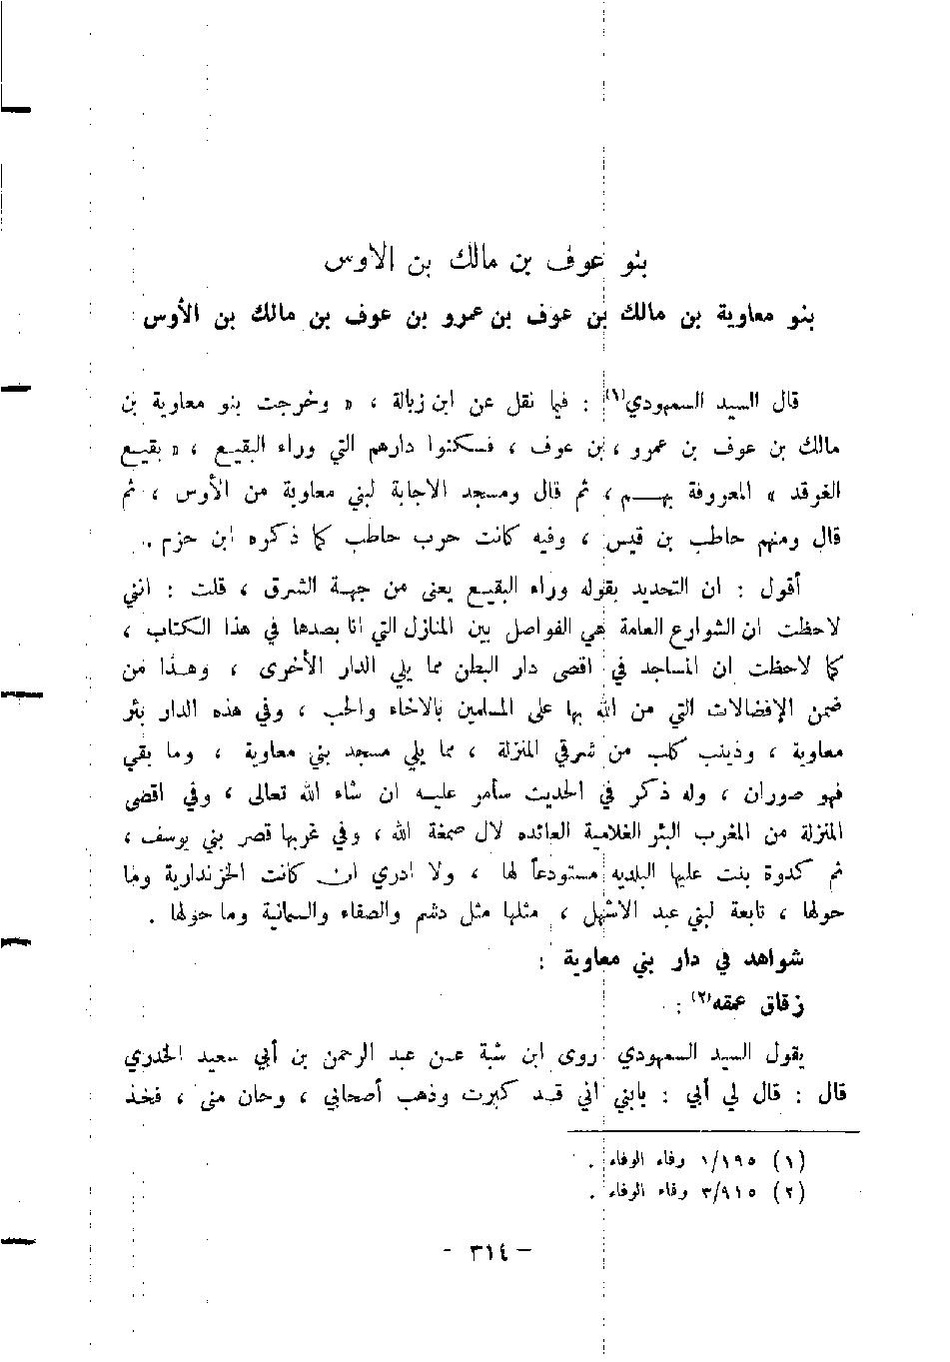 بنو عوف بن مالك بن الاوس
بنو معاوية بن مالك بن عوف بن عمرو بن عوف بن مالك بن الأوس
قال السيد السمهودي(١) : فيما نقل عن ابن زبالة ، « وخرجت بنو معاوية بن
مالك بن عوف بن عمرو ، بن عوف ، فسكنوا دارهم التي وراء البقيع ، « بقيع
الغرقد » المعروفة بهم ، ثم قال ومسجد الاجابة لبني معاوية من الأوس ، ثم
قال ومنهم حاطب بن قيس ، وفيه كانت حرب حاطب كما ذكره ابن حزم .
أقول : ان التحديد بقوله وراء البقيع يعنى من جهة الشرق ، قلت : انني
لاحظت ان الشوارع العامة هي الفواصل بين المنازل التي انا بصدها في هذا الكتاب ،
كما لاحظت ان المساجد في اقصى دار البطن مما يلي الدار الأخرى ، وهذا من
ضمن الإفضالات التي من الله بها على المسلمين بالاخاء والحب ، وفي هذه الدار بئر
معاوية ، وذينب كلب من شرقي المنزلة ، مما يلي مسجد بني معاوية ، وما بقي
فهو صوران ، وله ذكر في الحديث سأمر عليه ان شاء الله تعالى ، وفي اقصى
المنزلة من المغرب البئر الغلامية العائده لال صمغة الله ، وفي غربها قصر بني يوسف ،
ثم كدوة بنت عليها البلديه مستودعاً لها ، ولا ادري ان كانت الخزندارية وما
حولها ، تابعة لبني عبد الاشهل ، مثلها مثل دشم والصفاء والسمانية وما حولها .
شواهد في دار بني معاوية :
زقاق عمقه(٢) :
يقول السيد السمهودي روى ابن شبة عن عبد الرحمن بن أبي سعيد الخدري
قال : قال لي أبي : يابني اني قد كبرت وذهب أصحابي ، وحان منى ، فخذ
(١) ١/١٩٥ وفاء الوفاء .
(٢) ٣/٩١٥ وفاء الوفاء .
- ٣١٤ -